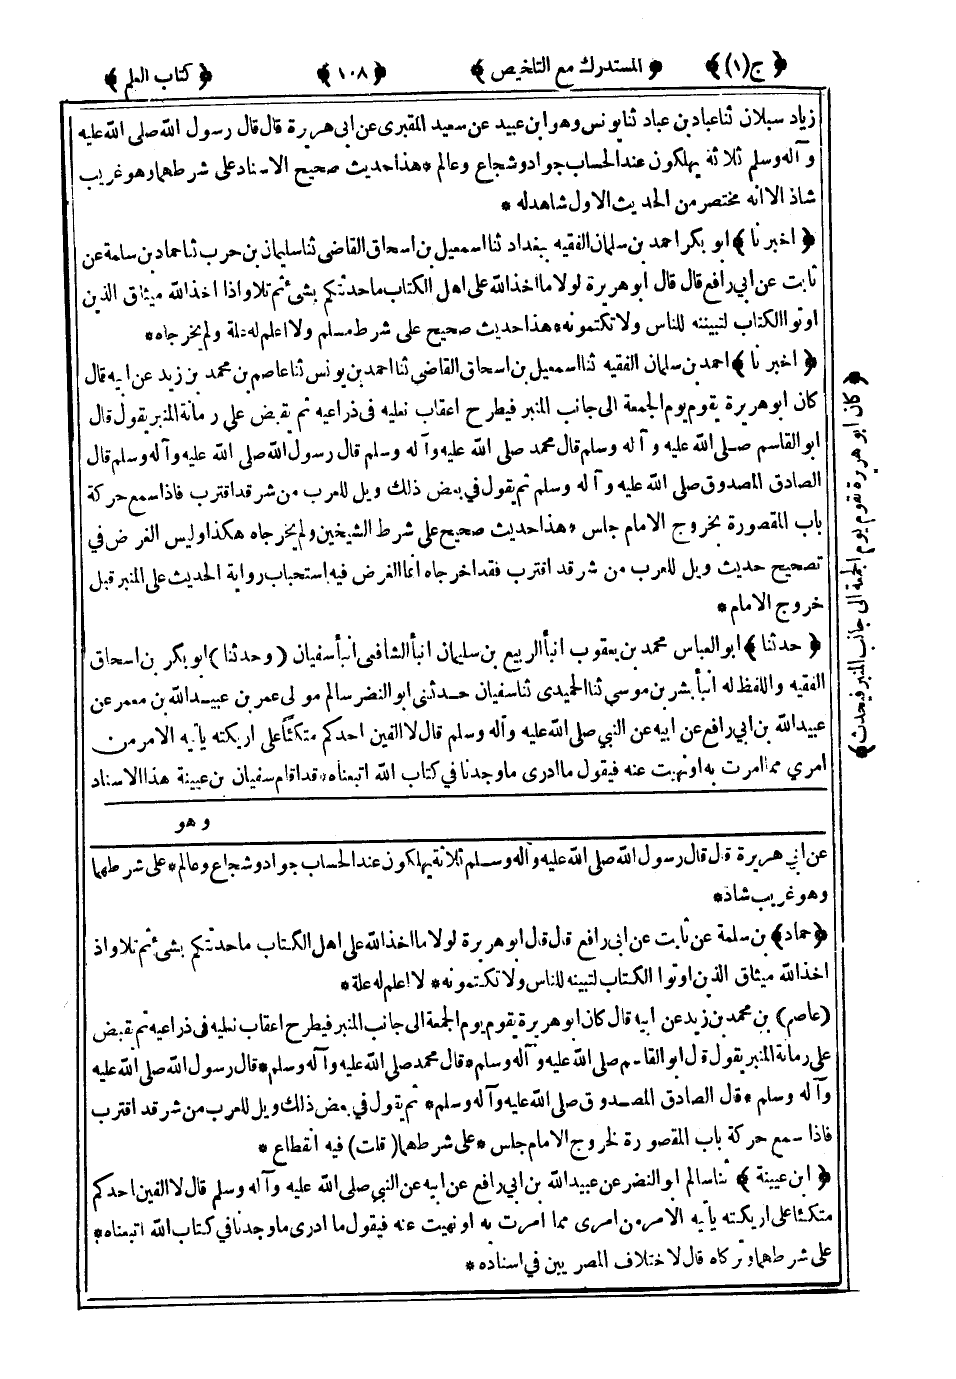 ﴿ ج(١) ﴾ ﴿ المستدرك مع التلخيص ﴾ ﴿ ١٠٨ ﴾ ﴿ كتاب العلم ﴾
زياد سبلان ثنا عباد بن عباد ثنا يونس وهو ابن عبيد عن سعيد المقبرى عن ابى هريرة قال قال رسول الله صلى الله عليه
وآله وسلم ثلاثة يهلكون عند الحساب جواد وشجاع وعالم * هذا حديث صحيح الاسناد على شرطهما وهو غريب
شاذ الا انه مختصر من الحديث الاول شاهد له *
﴿ اخبرنا ﴾ ابو بكر احمد بن سلمان الفقيه ببغداد ثنا اسمعيل بن اسحاق القاضى ثنا سليمان بن حرب ثنا حماد بن سلمة عن
ثابت عن ابى رافع قال قال ابو هريرة لولا ما اخذ الله على اهل الكتاب ما حدثتكم بشىء ثم تلا واذا اخذ الله ميثاق الذين
اوتوا الكتاب لتبيننه للناس ولا تكتمونه * هذا حديث صحيح على شرط مسلم ولا اعلم له علة ولم يخرجاه *
﴿ اخبرنا ﴾ احمد بن سلمان الفقيه ثنا اسمعيل بن اسحاق القاضى ثنا احمد بن يونس ثنا عاصم بن محمد بن زيد عن ابيه قال
كان ابو هريرة يقوم يوم الجمعة الى جانب المنبر فيطرح اعقاب نعليه فى ذراعيه ثم يقبض على رمانة المنبر يقول قال
ابو القاسم صلى الله عليه وآله وسلم قال محمد صلى الله عليه وآله وسلم قال رسول الله صلى الله عليه وآله وسلم قال
الصادق المصدوق صلى الله عليه وآله وسلم ثم يقول فى بعض ذلك ويل للعرب من شر قد اقترب فاذا سمع حركة
باب المقصورة بخروج الامام جلس * هذا حديث صحيح على شرط الشيخين ولم يخرجاه هكذا وليس الغرض في
تصحيح حديث ويل للعرب من شر قد اقترب فقد اخرجاه انما الغرض فيه استحباب رواية الحديث على المنبر قبل
خروج الامام *
﴿ حدثنا ﴾ ابو العباس محمد بن يعقوب انبأ الربيع بن سليمان انبأ الشافعى انبأ سفيان ( وحدثنا ) ابو بكر بن اسحاق
الفقيه واللفظ له انبأ بشر بن موسى ثنا الحميدى ثنا سفيان حدثنى ابو النضر سالم مولى عمر بن عبيد الله بن معمر عن
عبيد الله بن ابى رافع عن ابيه عن النبي صلى الله عليه وآله وسلم قال لا الفين احدكم متكئا على اريكته يأتيه الامر من
امري مما امرت به او نهيت عنه فيقول ما ادرى ما وجدنا في كتاب الله اتبعناه * قد اقام سفيان بن عيينة هذا الاسناد
وهو
عن ابي هريرة قال قال رسول الله صلى الله عليه وآله وسلم ثلاثة يهلكون عند الحساب جواد وشجاع وعالم * على شرطهما
وهو غريب شاذ *
﴿ حماد ﴾ بن سلمة عن ثابت عن ابى رافع قال قال ابو هريرة لولا ما اخذ الله على اهل الكتاب ما حدثتكم بشىء ثم تلا واذ
اخذ الله ميثاق الذين اوتوا الكتاب لتبيننه للناس ولا تكتمونه * لا اعلم له علة *
(عاصم) بن محمد بن زيد عن ابيه قال كان ابو هريرة يقوم يوم الجمعة الى جانب المنبر فيطرح اعقاب نعليه فى ذراعيه ثم يقبض
على رمانة المنبر يقول قال ابو القاسم صلى الله عليه وآله وسلم * قال محمد صلى الله عليه وآله وسلم * قال رسول الله صلى الله عليه
وآله وسلم * قال الصادق المصدوق صلى الله عليه وآله وسلم * ثم يقول فى بعض ذلك ويل للعرب من شر قد اقترب
فاذا سمع حركة باب المقصورة لخروج الامام جلس * على شرطهما ( قلت ) فيه انقطاع *
﴿ ابن عيينة ﴾ ثنا سالم ابو النضر عن عبيد الله بن ابي رافع عن ابيه عن النبي صلى الله عليه وآله وسلم قال لا الفين احدكم
متكئا على اريكته يأتيه الامر من امرى مما امرت به او نهيت عنه فيقول ما ادرى ما وجدنا في كتاب الله اتبعناه *
على شرطهما وتركاه قال لاختلاف المصريين في اسناده *
﴿ كان ابو هريرة يقوم يوم الجمعة الى جانب المنبر فيحدث ﴾